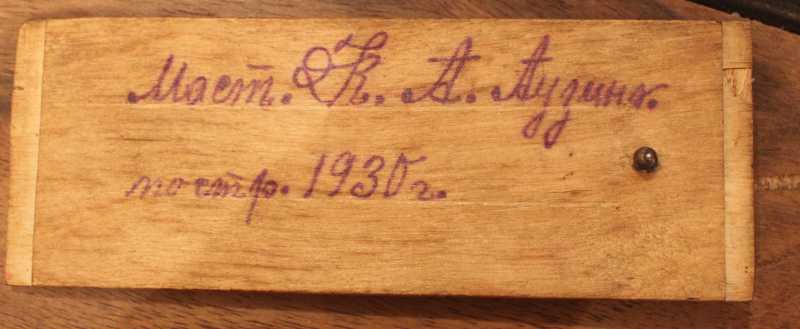 Маст. К. А. Аузинъ.
постр. 1930 г.